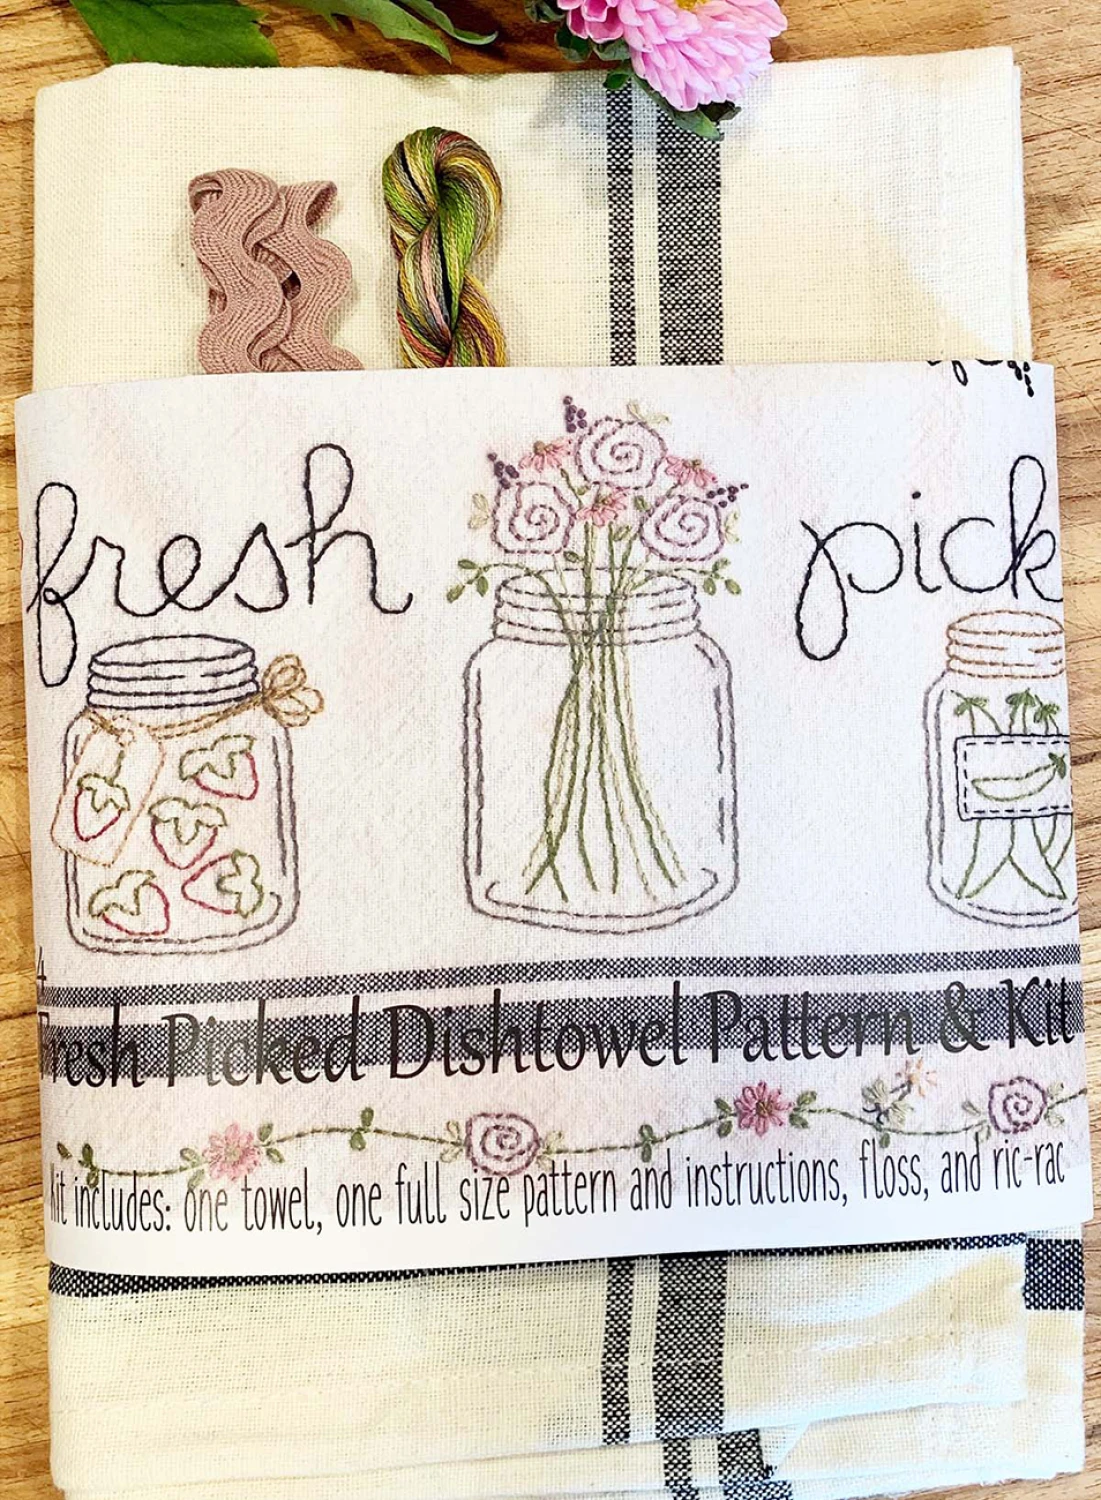 fresh pick
Fresh Picked Dishtowel Pattern & Kit
Kit includes: one towel, one full size pattern and instructions, floss, and ric-rac